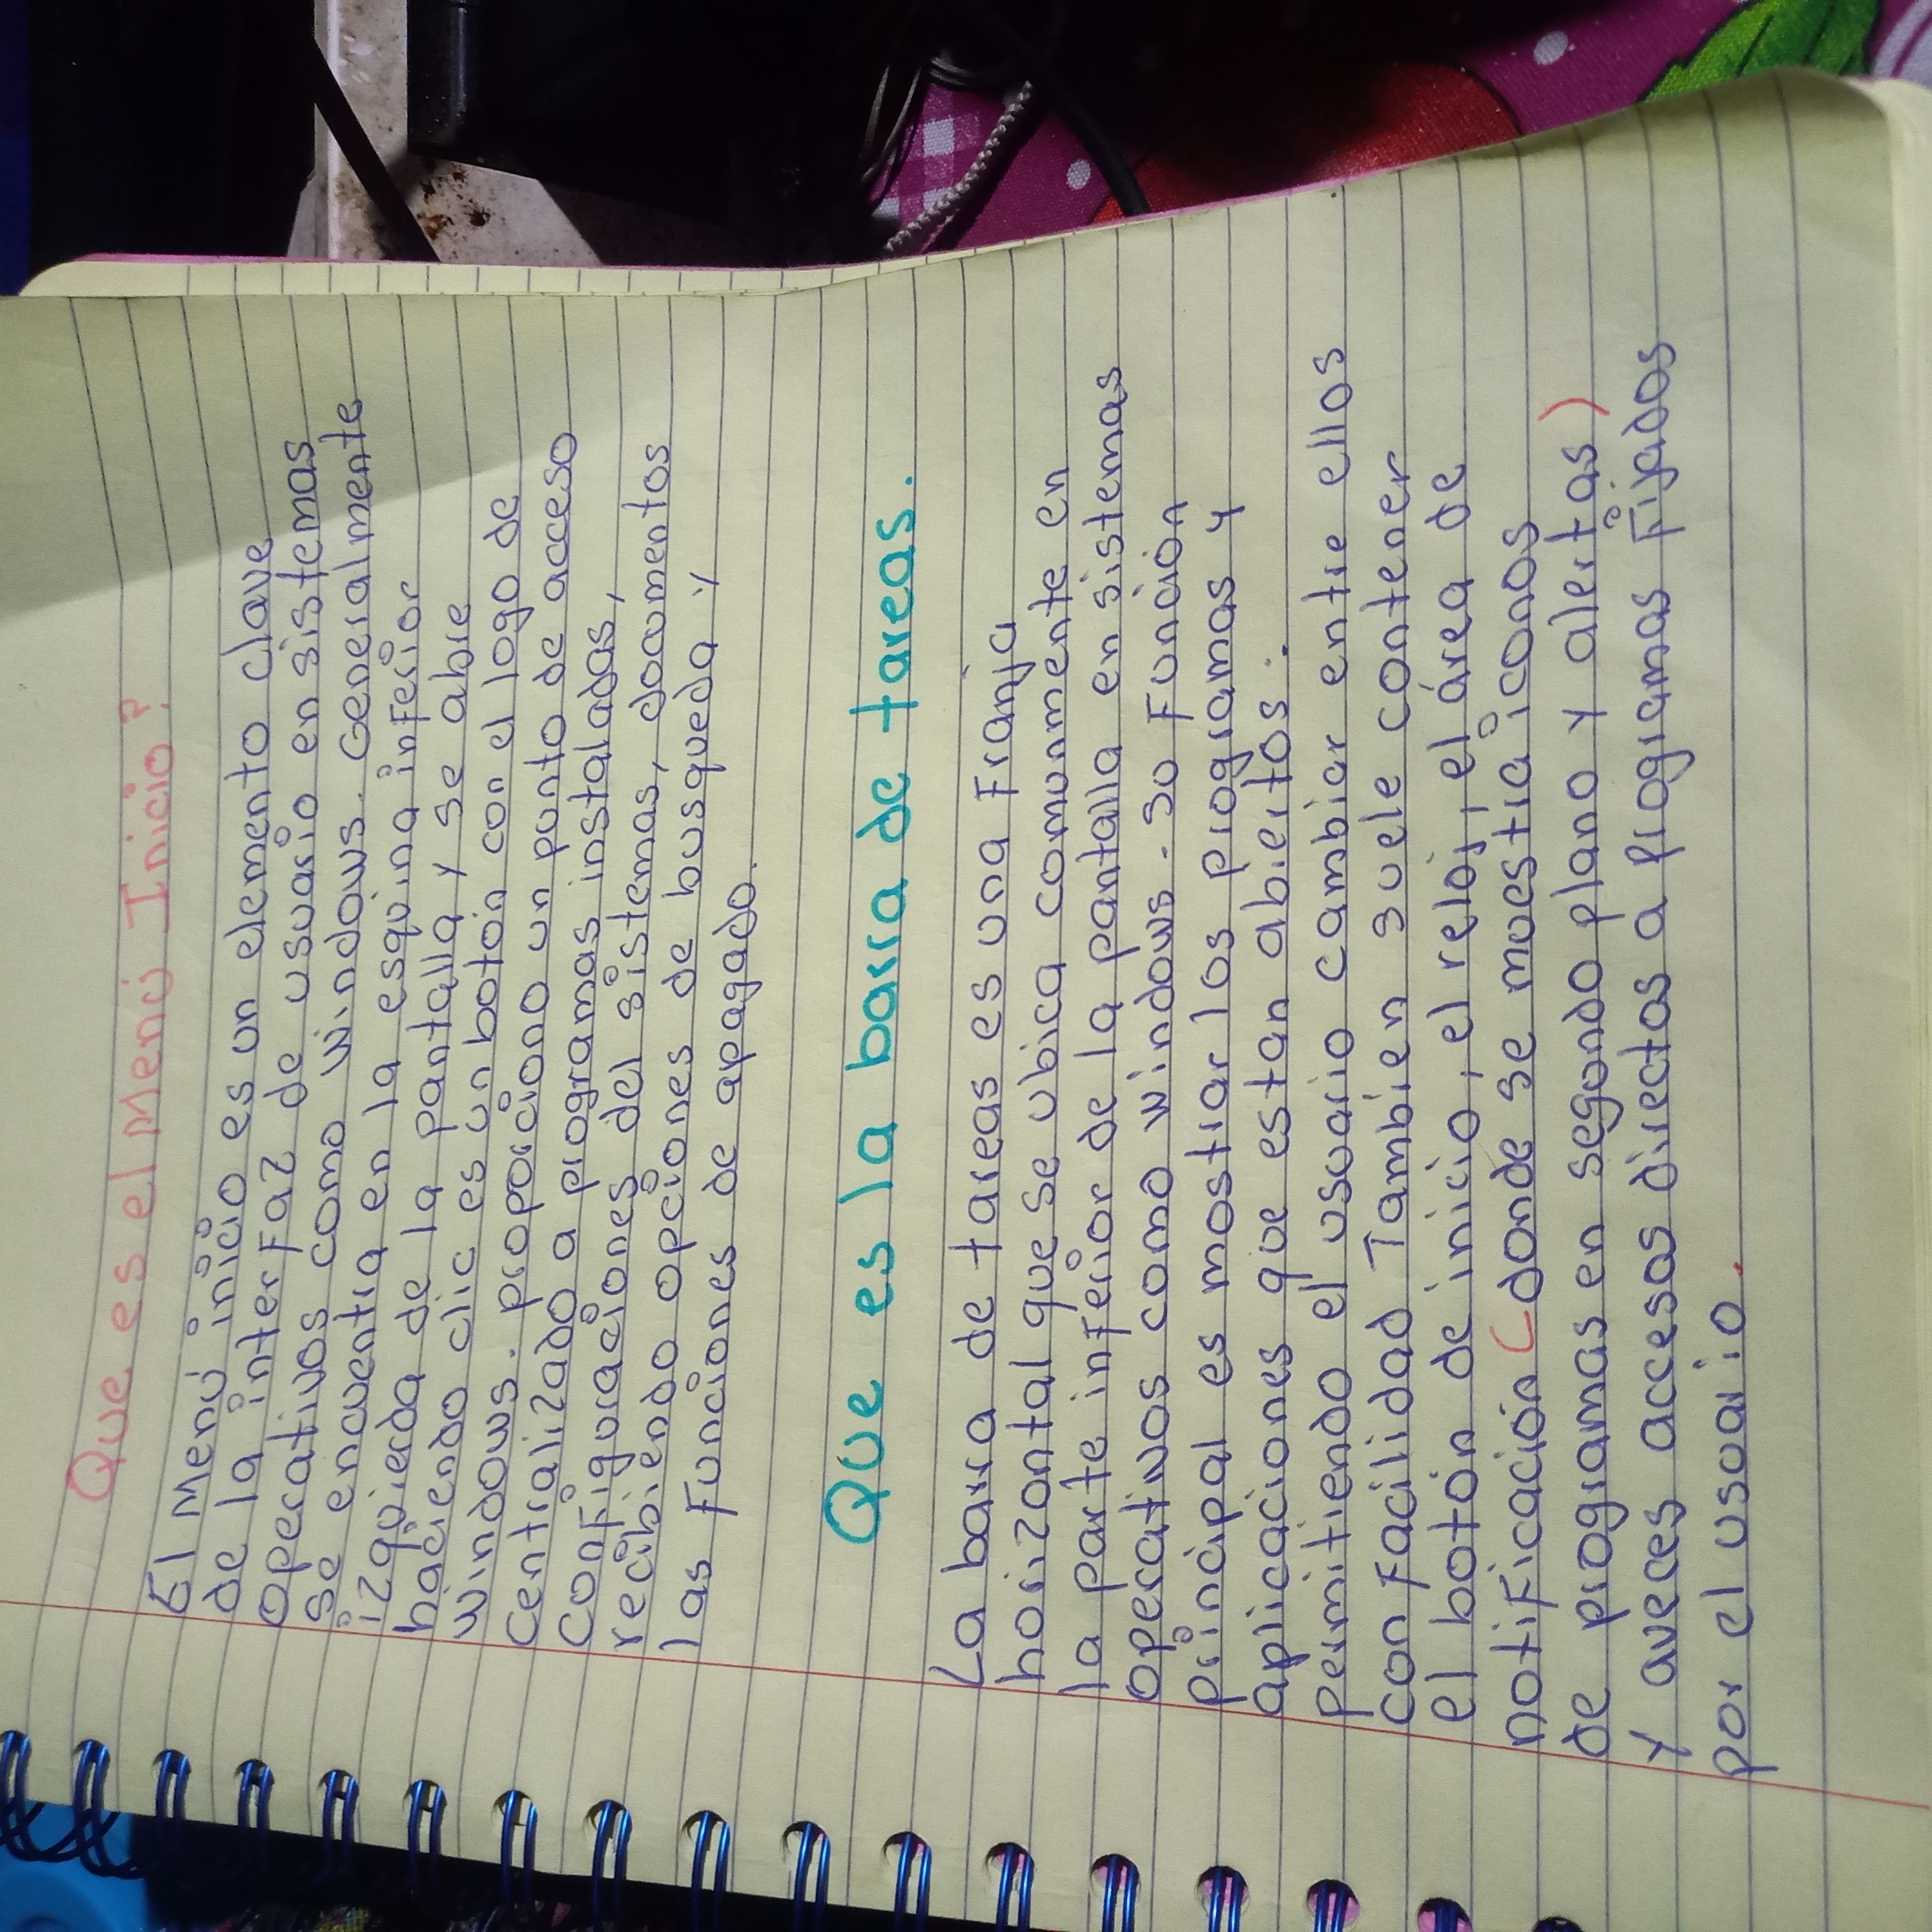 Que es el Menú Inicio?
El Menú inicio es un elemento clave
de la interfaz de usuario en sistemas
Operativos como Windows. Generalmente
se encuentra en la esquina inferior
izquierda de la pantalla y se abre
haciendo clic es un botón con el logo de
Windows. proporciono un punto de acceso
Centralizado a programas instaladas,
Configuraciones del sistemas, documentos
recibiendo opciones de busqueda y
las Funciones de apagado.
Que es la barra de tareas.
La barra de tareas es una Franja
horizontal que se ubica comunmente en
la parte inferior de la pantalla en sistemas
Operativos como windows. su Función
principal es mostrar los programas y
aplicaciones que estan abiertos.
permitiendo el usuario cambiar entre ellos
con Facilidad Tambien suele contener
el botón de inicio, el reloj, el área de
notificación (donde se muestra iconos
de programas en segundo plano y alertas)
y aveces accesos directos a programas Fijados
por el usuario.